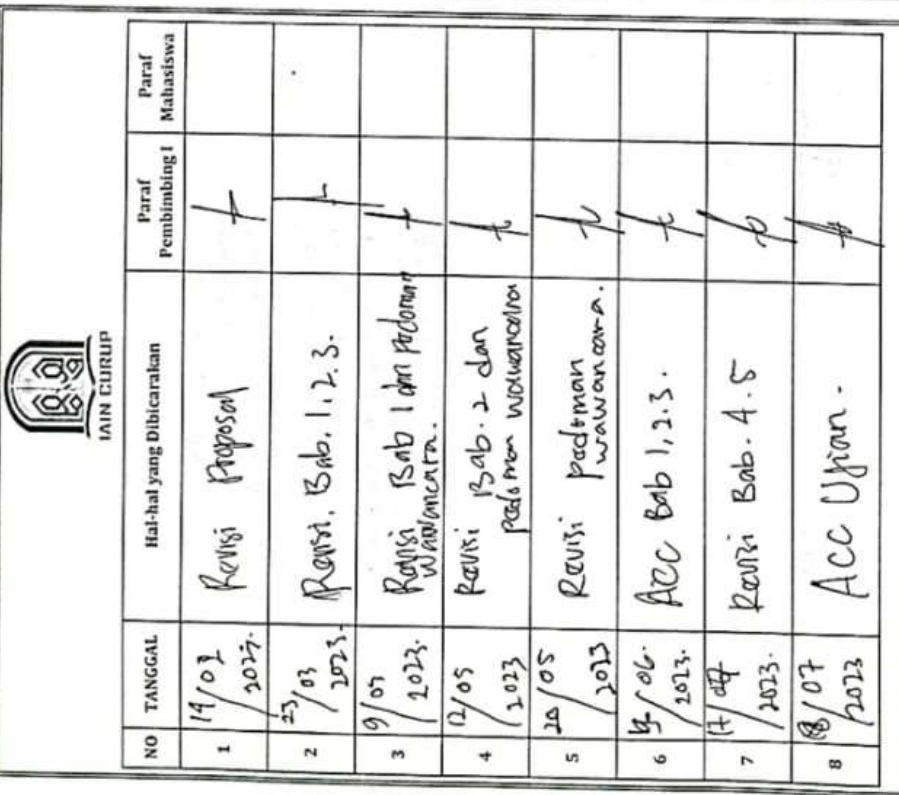 IAIN CURUP
NO TANGGAL Hal-hal yang Dibicarakan Paraf Pembimbing I Paraf Mahasiswa
1 14/02 2023. Revisi Proposal
2 23/03 2023. Revisi. Bab. 1, 2. 3.
3 9/05 2023. Revisi Bab 1 dan pedoman
wawancara.
4 12/05 2023 Revisi Bab. 2 dan
pedoman wawancara
5 20/05 2023 Revisi pedoman
wawancara.
6 /06. 2023. ACC Bab 1, 2. 3.
7 17/07 2023. Revisi Bab. 4. 5
8 18/07 2023 ACC Ujian.